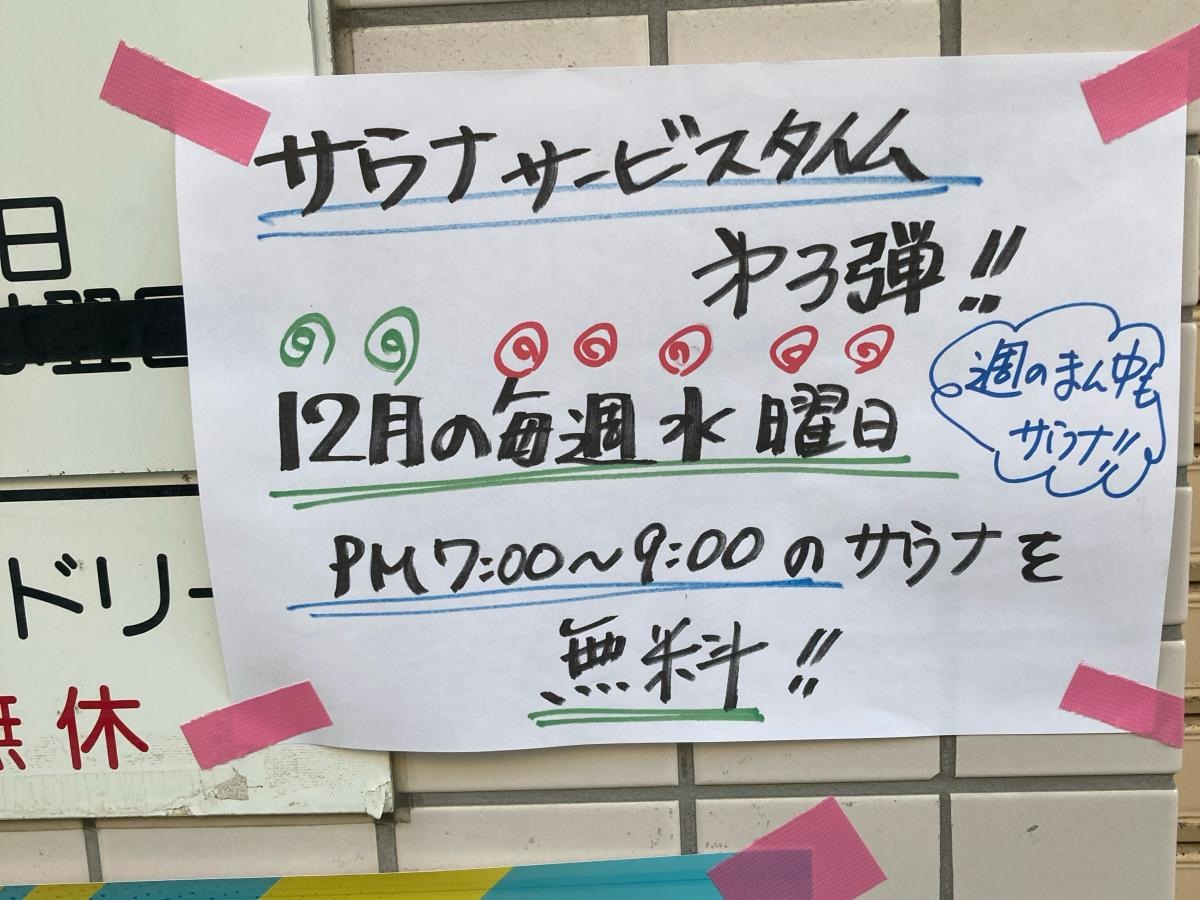 サウナサービスタイム
第3弾!!
12月の毎週水曜日
週のまん中も
サウナ!!
PM7:00〜9:00のサウナを
無料!!
日
ドリー
無休